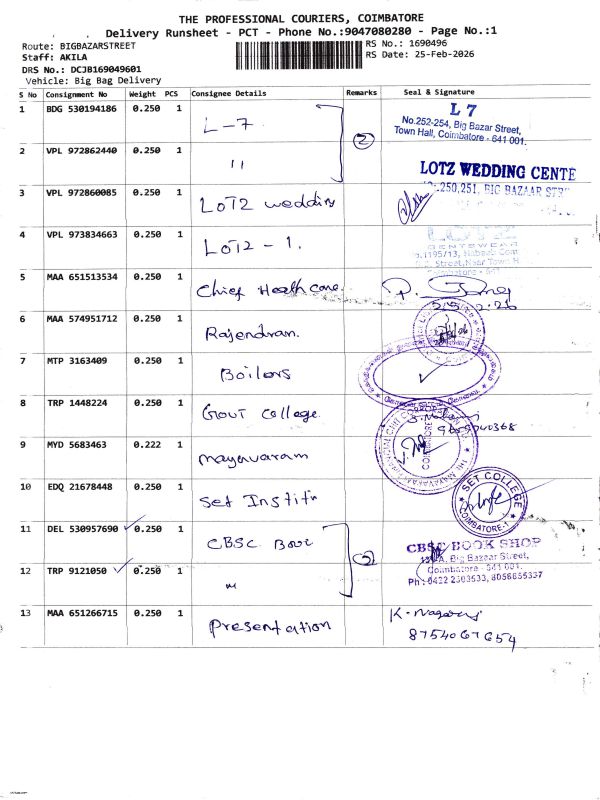 THE PROFESSIONAL COURIERS, COIMBATORE
Delivery Runsheet - PCT - Phone No.:9047080280 - Page No.:1
Route: BIGBAZARSTREET
Staff: AKILA
DRS No.: DCJB169049601
Vehicle: Big Bag Delivery
RS No.: 1690496
RS Date: 25-Feb-2026
S No Consignment No Weight PCS Consignee Details Remarks Seal & Signature
1 BDG 530194186 0.250 1 L-7
L 7
No.252-254, Big Bazar Street,
Town Hall, Coimbatore - 641 001.
2 VPL 972862440 0.250 1 11
2
LOTZ WEDDING CENTE
250,251, BIG BAZAAR STR
3 VPL 972860085 0.250 1 LOTZ wedding
4 VPL 973834663 0.250 1 LOTZ - 1.
LOTZ
1195/13, Habeeb Com
Street, Near Town H
Coimbatore - 641
5 MAA 651513534 0.250 1 Chief Health care
6 MAA 574951712 0.250 1 Rajendran.
7 MTP 3163409 0.250 1 Boilers
8 TRP 1448224 0.250 1 Govt College
9 MYD 5683463 0.222 1 mayavaram
COIMBATORE
10 EDQ 21678448 0.250 1 Set Institu
SET COLLEGE
COIMBATORE-1
11 DEL 530957690 0.250 1 CBSC Book
2
CBSC BOOK SHOP
Big Bazaar Street,
Coimbatore - 641 001.
12 TRP 9121050 0.250 1 "
13 MAA 651266715 0.250 1 Presentation
8754067654